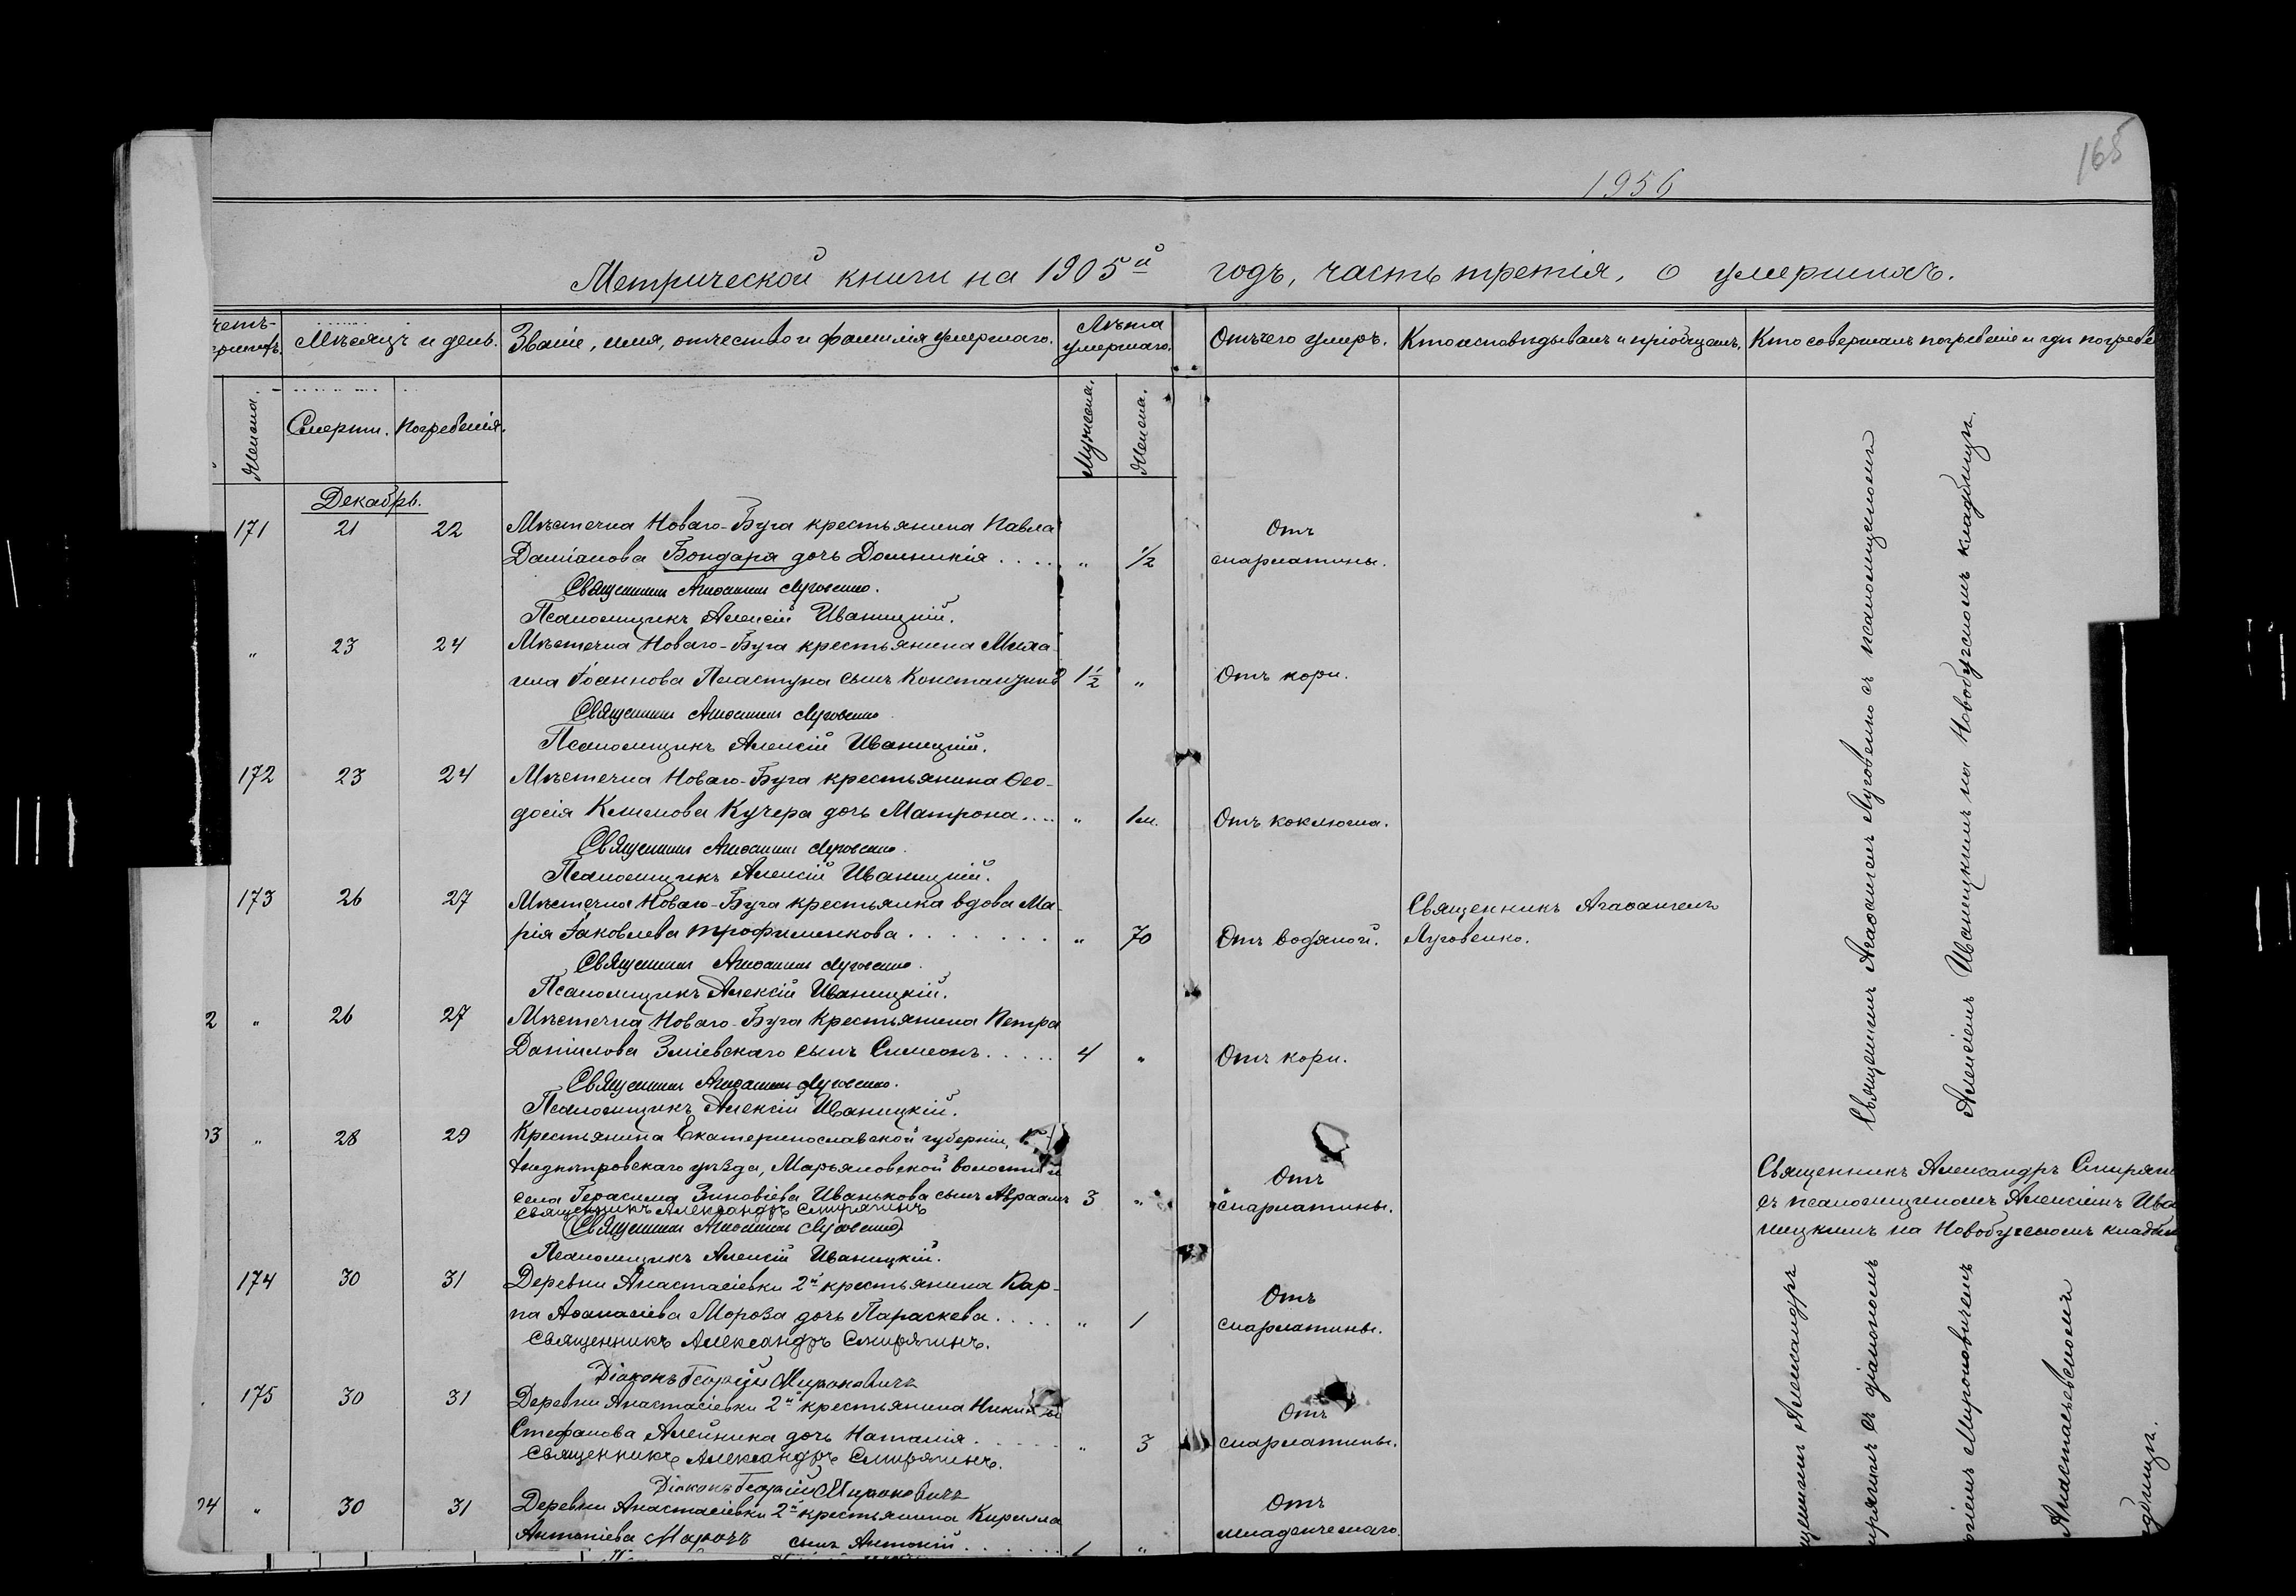 165
1956
Метрической книги на 1905й годъ, часть третія, о умершихъ.
Мѣсяцъ и день.
Званіе, имя, отчество и фамилія умершаго.
Лѣта умершаго.
Отъ чего умеръ.
Кто исповѣдывалъ и пріобщалъ.
Кто совершалъ погребеніе и гдѣ погребе
Женска.
Смерти.
Погребенія.
Мужеска.
Женска.
Декабрь.
171 21 22 Мѣстечка Новаго-Буга крестьянина Павла Отъ
Даміанова Бондаря дочь Домникія . . . . " 1/2 скарлатины.
Священникъ Агаѳангелъ Луговенко.
Псаломщикъ Алексій Иваницкій.
" 23 24 Мѣстечка Новаго-Буга крестьянина Миха
ила Іоаннова Пластуна сынъ Константинъ 1 1/2 " Отъ кори.
Священникъ Агаѳангелъ Луговенко
Псаломщикъ Алексій Иваницкій.
172 23 24 Мѣстечка Новаго-Буга крестьянина Ѳео-
досія Климова Кучера дочь Матрона . . . . " 1м. Отъ коклюша.
Священникъ Агаѳангелъ Луговенко.
Псаломщикъ Алексій Иваницкій.
173 26 27 Мѣстечка Новаго-Буга крестьянка вдова Ма- Священникъ Агаѳангелъ
рія Іаковлева Трофименкова . . . . . . . . " 70 Отъ водяной. Луговенко.
Священникъ Агаѳангелъ Луговенко.
Псаломщикъ Алексій Иваницкій.
2 " 26 27 Мѣстечка Новаго-Буга крестьянина Петра
Даніилова Зміевскаго сынъ Симеонъ . . . . . 4 " Отъ кори.
Священникъ Агаѳангелъ Луговенко.
Псаломщикъ Алексій Иваницкій.
03 " 28 29 Крестьянина Екатеринославской губерніи,
днѣпровскаго уѣзда, Марьяновской волости и Отъ
села Герасима Зиновіева Иванькова сынъ Авраамъ 3 " скарлатины.
Священникъ Александръ Смирягинъ
(Священникъ Агаѳангелъ Луговенко)
Псаломщикъ Алексій Иваницкій.
Священникъ Александръ Смиряги
съ псаломщикомъ Алексіемъ Ива
ницкимъ на Новобугскомъ кладби
174 30 31 Деревни Анастасіевки 2й крестьянина Кар- Отъ
па Аѳанасіева Мороза дочь Параскева . . . . " 1 скарлатины.
Священникъ Александръ Смирягинъ.
Діаконъ Георгій Мироновичъ
175 30 31 Деревни Анастасіевки 2й крестьянина Никиты Отъ
Стефанова Алейника дочь Наталія . . . . . . " 3 скарлатины.
Священникъ Александръ Смирягинъ.
Діаконъ Георгій Мироновичъ
04 " 30 31 Деревни Анастасіевки 2й крестьянина Кирилла Отъ
Антоніева Морозъ сынъ Антоній . . . . . . 1 " младенческаго.
Священникъ Агаѳангелъ Луговенко съ псаломщикомъ
Алексіемъ Иваницкимъ на Новобугскомъ кладбищѣ.
щенникъ Александръ
ирягинъ съ діакономъ
ргіемъ Мироновичемъ
Анастасьевскомъ
адбищѣ.